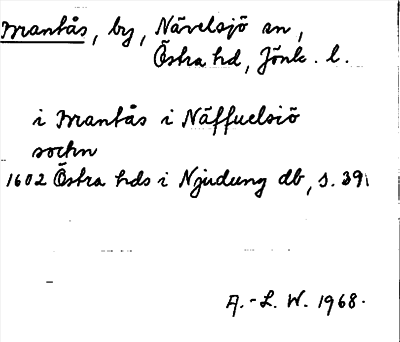 Mantås, by, Nävelsjö sn,
Östra hd, Jönk. l.
i Mantås i Näffuelsiö
sochn
1602 Östra hds i Njudung db, s. 39
A.-L. W. 1968.